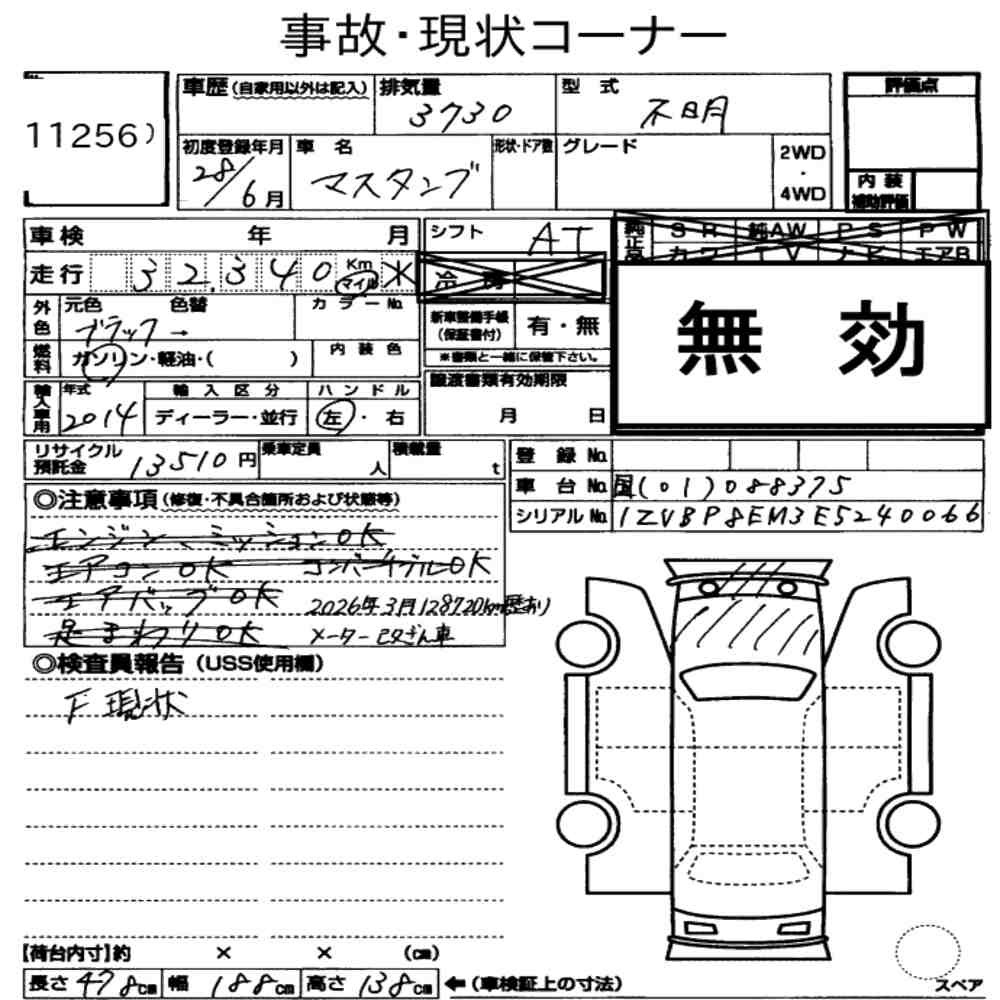 事故・現状コーナー
11256)
車歴 (自家用以外は記入) 排気量 3730 型式 不明 評価点
初度登録年月 28/6月 車名 マスタング 形状・ドア数 グレード 2WD・4WD 内装補助評価
車検 年 月 シフト AT 純正品 SR 純AW PS PW
走行 32,340 Km マイル * 冷房 カワ TV ナビ エアB
外色 元色 ブラック → 色替 カラーNo. 新車整備手帳(保証書付) 有・無 無効
燃料 ガソリン・軽油・( ) 内装色 ※書類と一緒に保管下さい。
輸入車用 年式 2014 輸入区分 ディーラー・並行 ハンドル 左・右 譲渡書類有効期限 月 日
リサイクル預託金 13510円 乗車定員 人 積載量 t 登録No.
車台No. 国(01)088375
シリアルNo. 1ZVBP8EM3E5240066
◎注意事項 (修復・不具合箇所および状態等)
エンジン、ミッションOK
エアコンOK コンバーチブルOK
エアバッグOK 2026年3月128720km歴あり
足まわりOK メーター改ざん車
◎検査員報告 (USS使用欄)
F現状
【荷台内寸】約 × × (cm)
長さ 478cm 幅 188cm 高さ 138cm ←(車検証上の寸法)
スペア